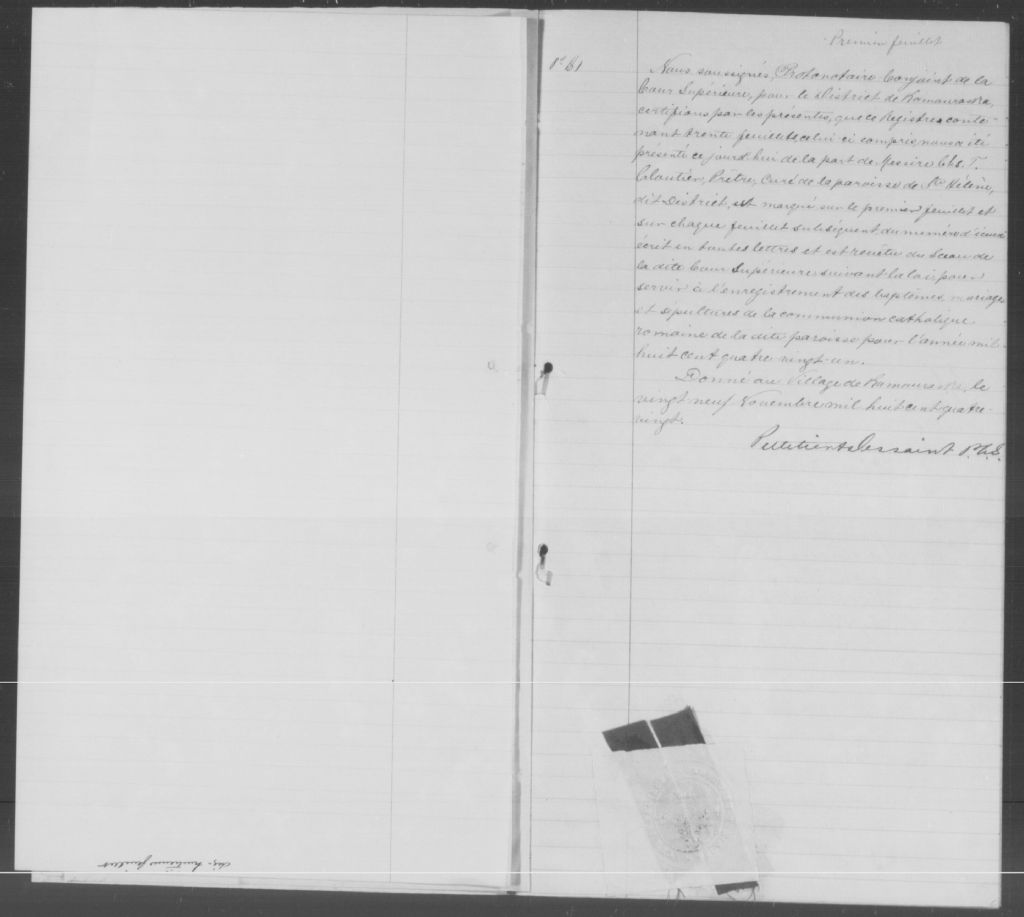 Premier feuillet
Nous soussignés, Protonotaire Conjoint de la
Cour Supérieure, pour le District de Kamouraska,
certifions par les présentes, que ce Registre conte-
nant trente feuillets, celui ci compris, nous a été
présenté ce jourd'hui de la part de Messire Chs. T.
Cloutier, Prêtre, Curé de la paroisse de Ste Hélène,
dit District, est marqué sur le premier feuillet et
sur chaque feuillet subséquent du numéro d'iceux
écrit en toutes lettres et est revêtu du Sceau de
la dite Cour Supérieure suivant la loi, pour
servir à l'enregistrement des baptêmes, mariages
et sépultures de la communion catholique
romaine de la dite paroisse pour l'année mil
huit cent quatre vingt-un.
Donné au Village de Kamouraska, le
vingt neuf Novembre mil huit cent quatre-
vingt.
Pelletier & Dessaint P.C.S.
dix-huitième feuillet